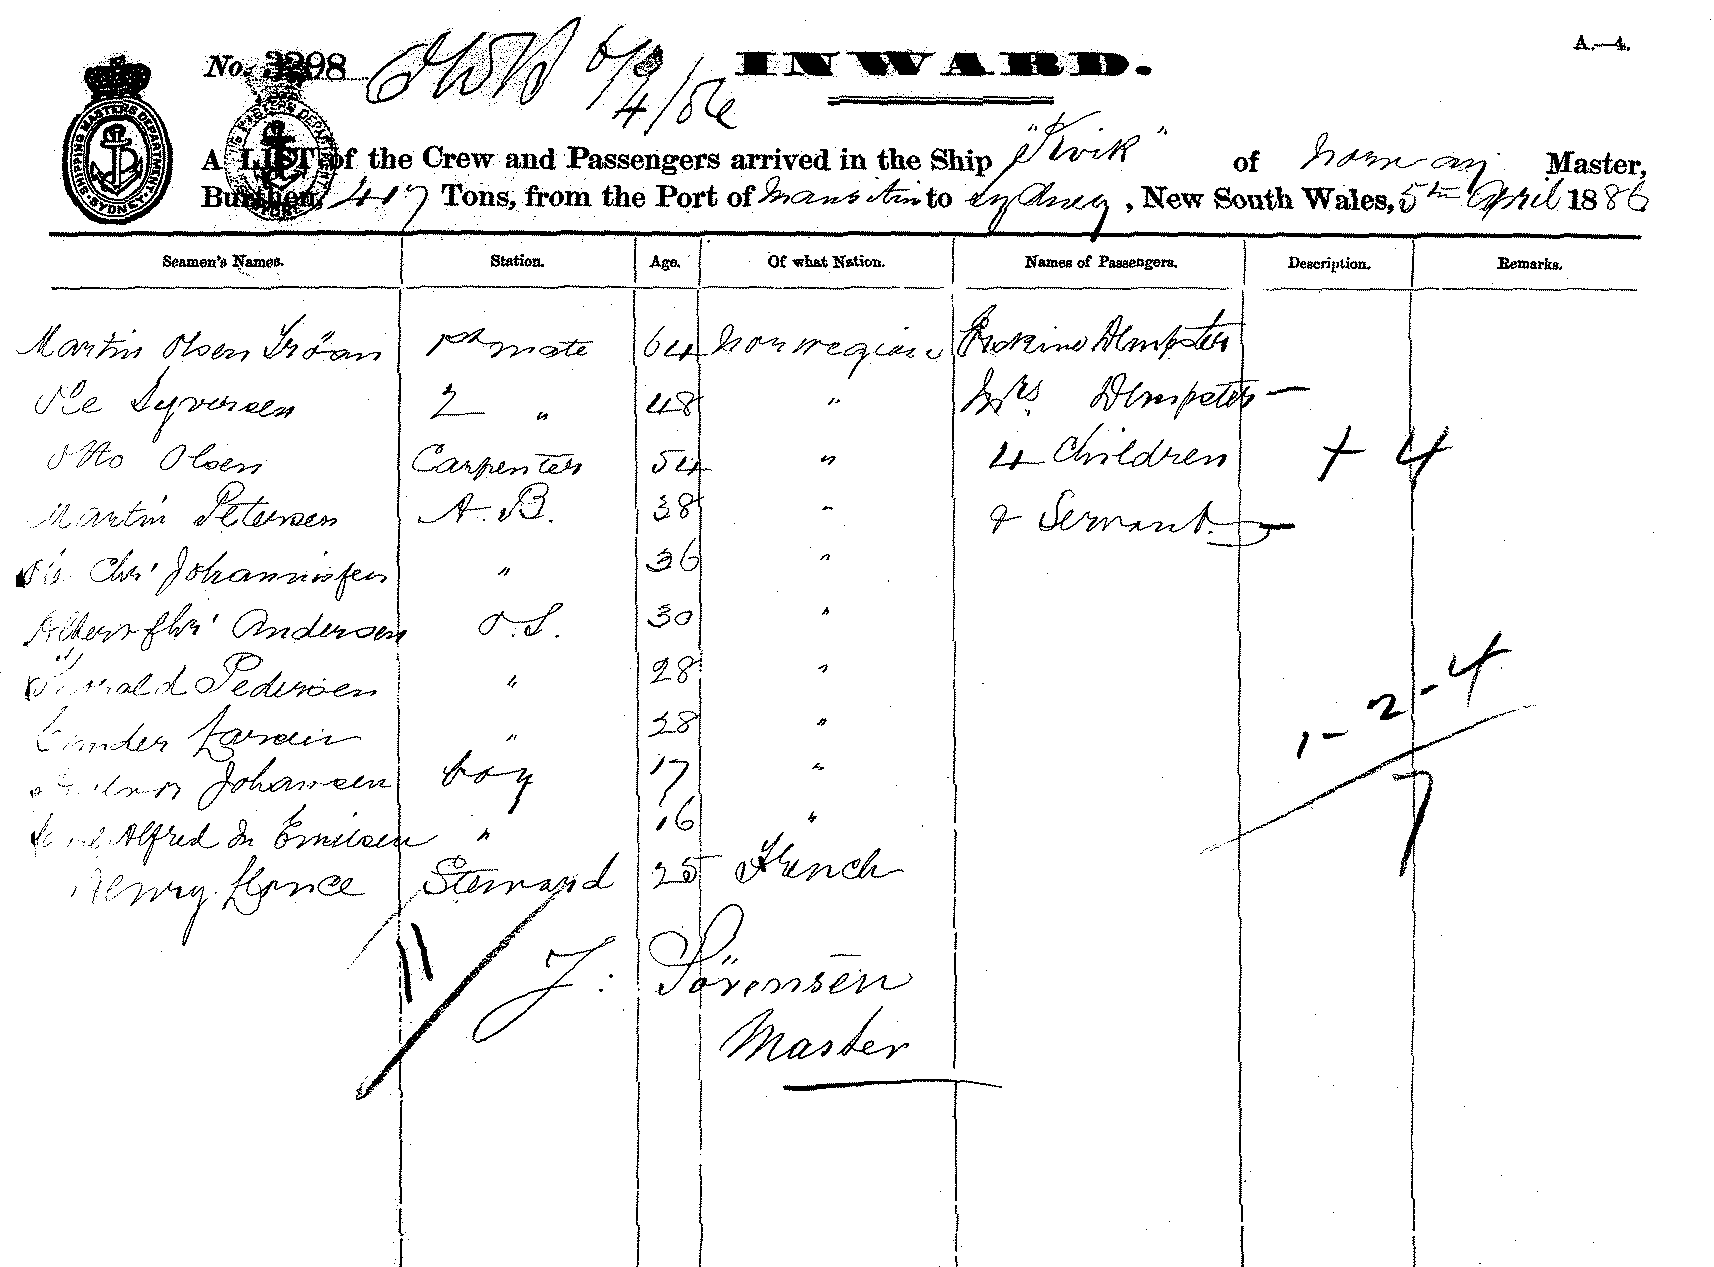 No. 3298 6/4/86 INWARD. A.—4.
SHIPPING MASTERS DEPARTMENT SYDNEY
A LIST of the Crew and Passengers arrived in the Ship "Kvik" of Norway Master,
Burthen, 417 Tons, from the Port of to Sydney, New South Wales, 5th April 1886
Seamen's Names. Station. Age. Of what Nation. Names of Passengers. Description. Remarks.
Martin Olsen 1st mate 64 Norwegian Erskine Dempster
Ole Syversen 2 " 48 " Mrs Dempster —
Otto Olsen Carpenter 54 " 4 Children + 4
Martin Petersen A.B. 38 " & Servant —
Chr' Johannissen " 36 "
Chr' Andersen O.S. 30 "
Pedersen " 28 "
Larsen " 28 " 1 - 2 - 4
Johansen boy 17 " 7
Alfred Emilsen " 16 "
Henry Steward 25 French
11
J: Sörensen
Master